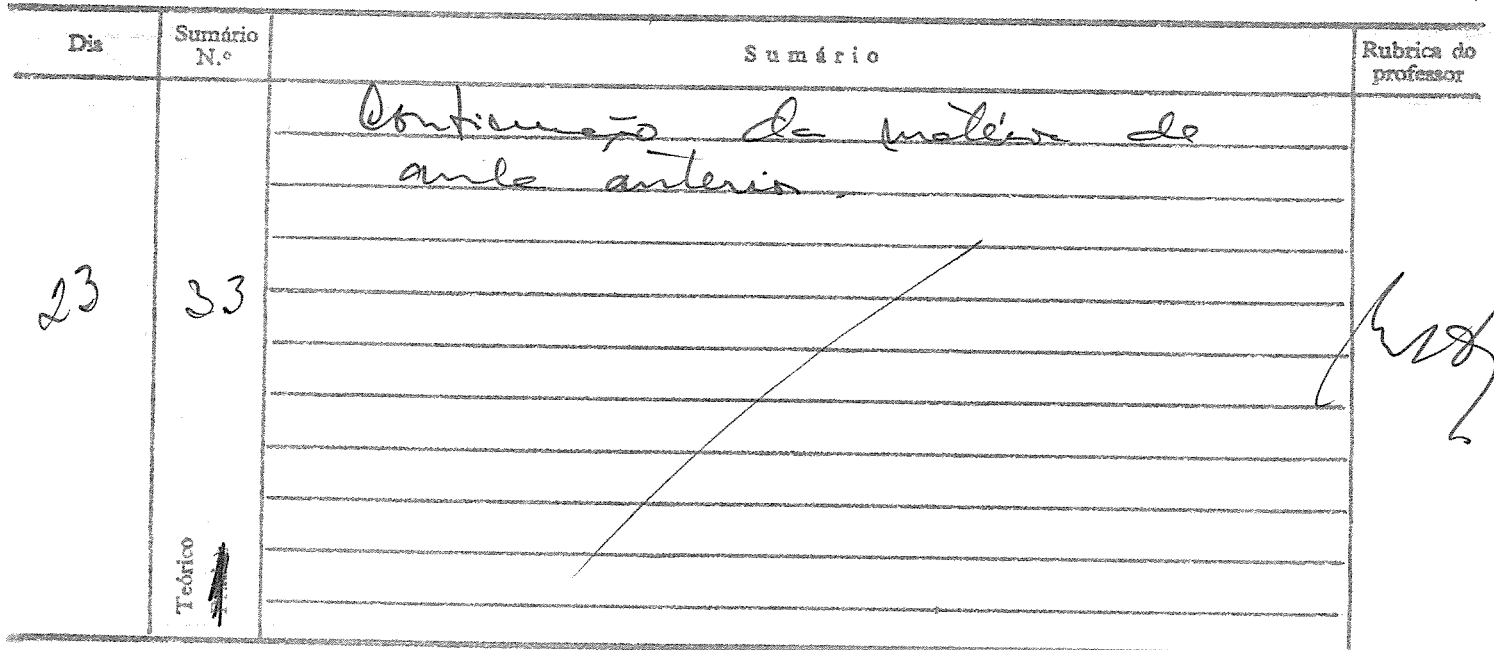 Dia
Sumário
N.º
Sumário
Rubrica do
professor
23
33
Continuação da matéria da
aula anterior.
Teórico